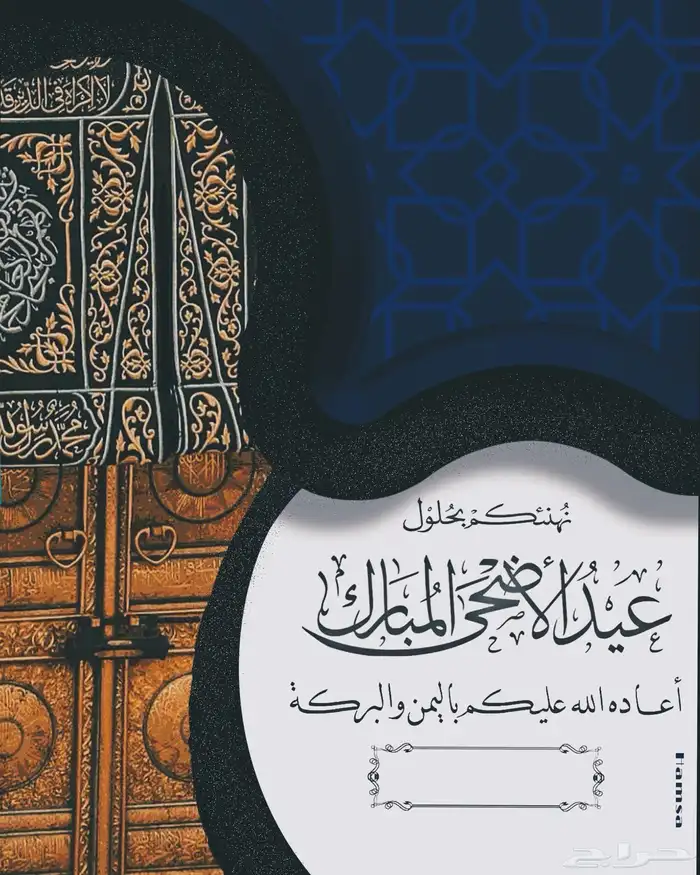 لا إكراه في الدين قد
محمد رسول الله
نُهنئكم بحُلُول
عيدُ الأضحَى المُبَارَك
أعاده الله عليكم باليمن والبركة
Hamsa
حراج